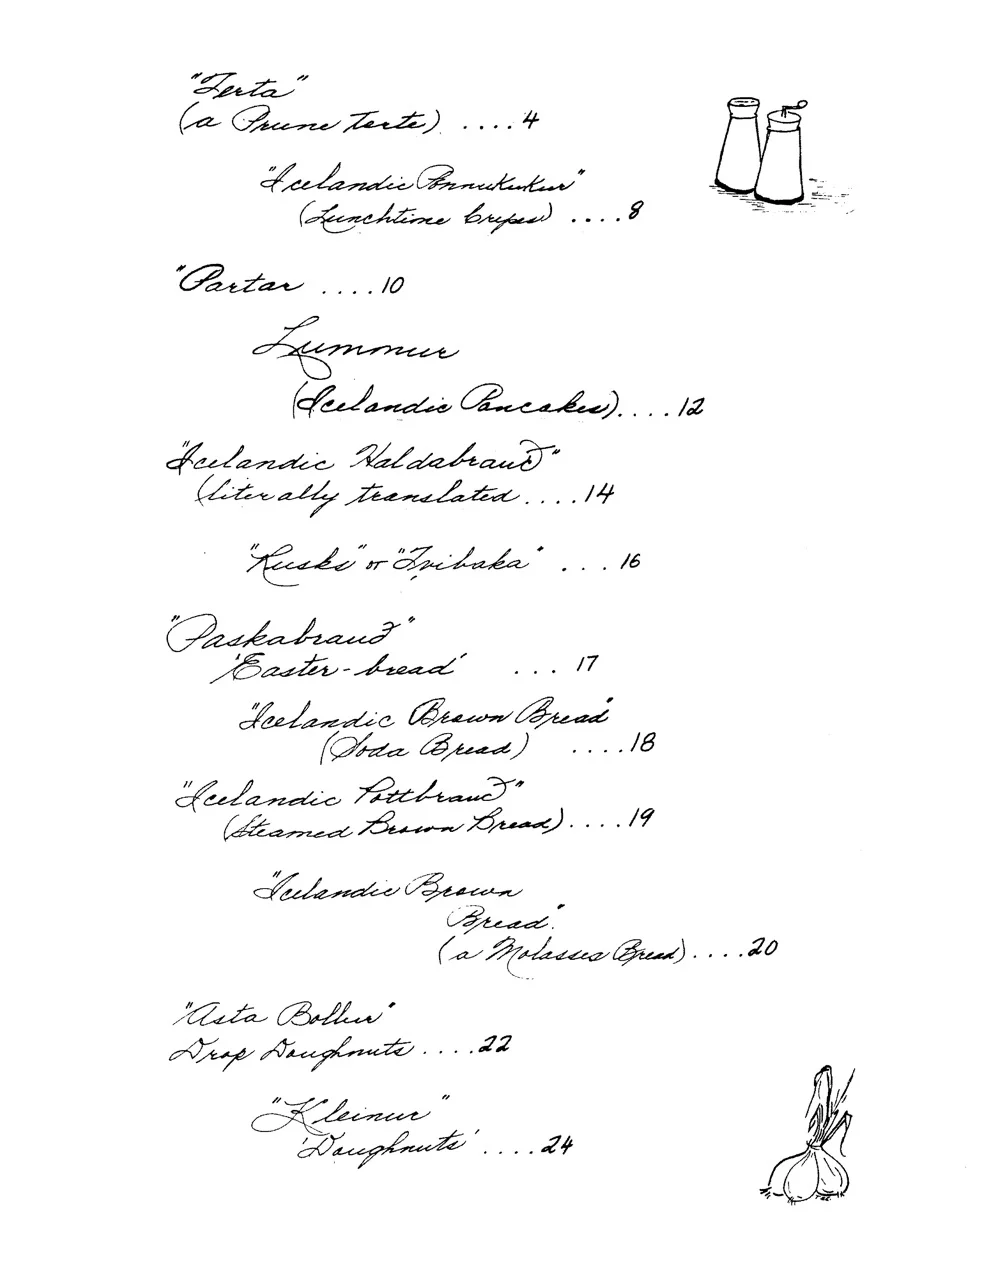 "Terta"
(a Prune Torte) ....4
"Icelandic Ponnukukur"
(Lunchtime Crepes) ....8
"Partar ....10
Lummur
(Icelandic Pancakes)....12
"Icelandic Haldabraud"
(literally translated ....14
"Rusks" or "Tvibaka" ...16
"Paskabraud"
'Easter-bread' ...17
"Icelandic Brown Bread"
(Soda Bread) ....18
"Icelandic Pottbraud"
(Steamed Brown Bread)....19
"Icelandic Brown
Bread"
(a Molasses Bread)....20
"Asta Bollur"
Drop Doughnuts ....22
"Kleinur"
'Doughnuts' ....24